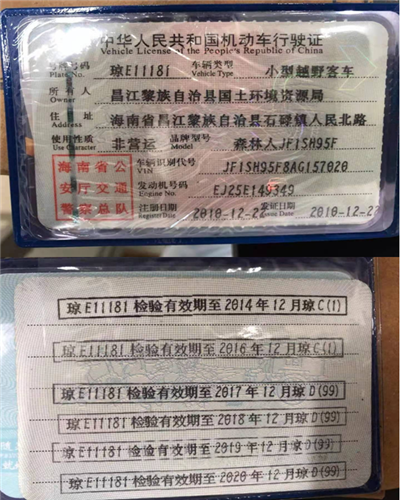 中华人民共和国机动车行驶证
Vehicle License of the People's Republic of China
号牌号码 琼E11181 车辆类型 小型越野客车
Plate No. Vehicle Type
所有人 昌江黎族自治县国土环境资源局
Owner
住址 海南省昌江黎族自治县石碌镇人民北路
Address
使用性质 非营运 品牌型号 森林人JF1SH95F
Use Character Model
海南省公 车辆识别代号 JF1SH95F8AG157020
VIN
安厅交通 发动机号码 EJ25E149349
Engine No.
警察总队 注册日期 2010-12-22 发证日期 2010-12-22
Register Date Issue Date
琼E11181检验有效期至2014年12月琼C(1)
琼E11181检验有效期至2016年12月琼C(1)
琼E11181检验有效期至2017年12月琼D(99)
琼E11181检验有效期至2018年12月琼D(99)
琼E11181检验有效期至2019年12月琼D(99)
琼E11181检验有效期至2020年12月琼D(99)